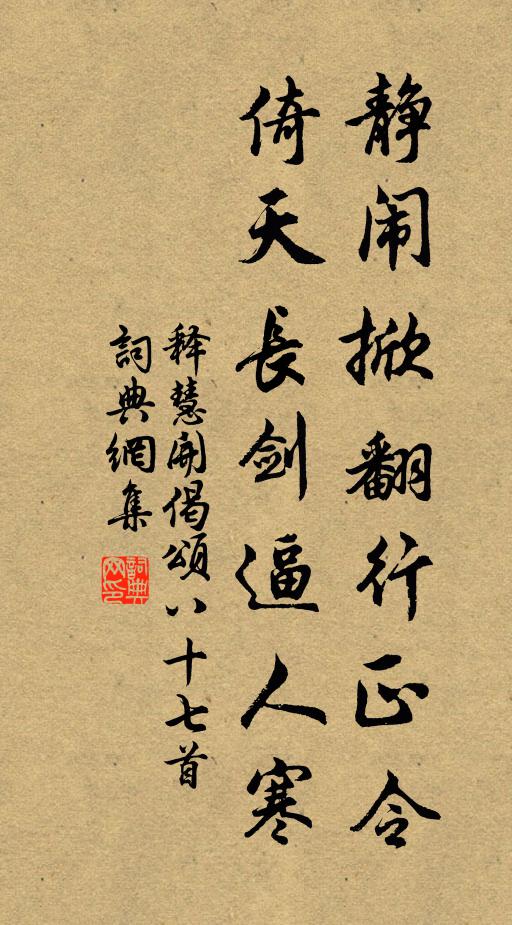 静闹掀翻行正令
倚天長剑逼人寒
释慧開偈頌八十七首
詞典網集
詞典網印